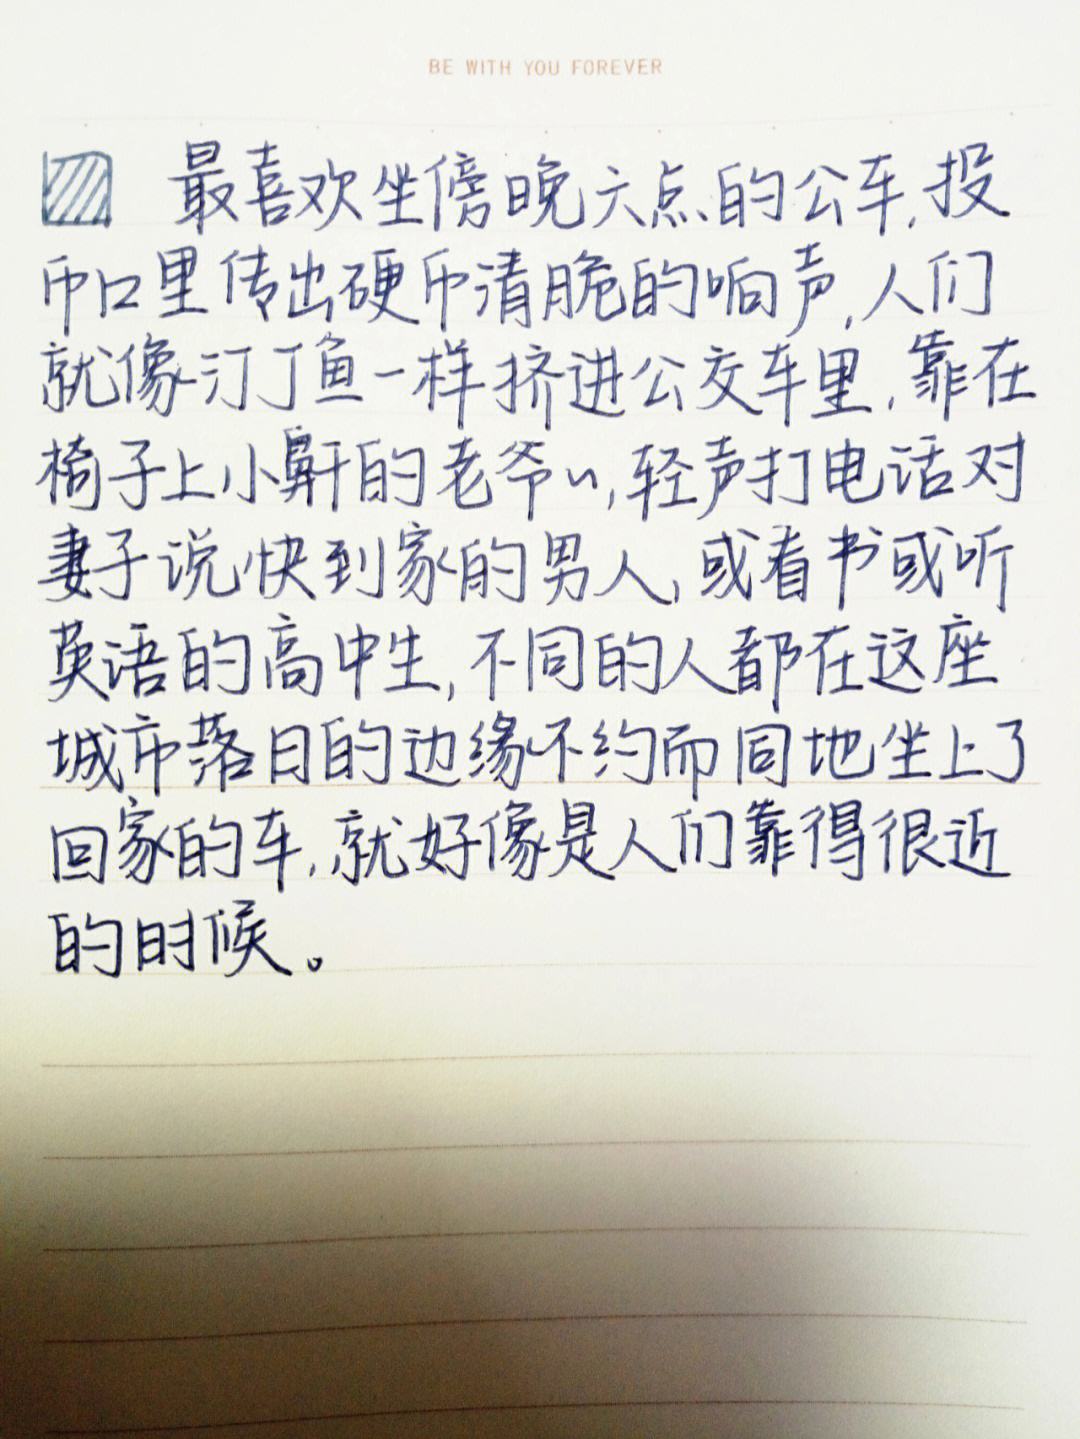 BE WITH YOU FOREVER
最喜欢坐傍晚六点的公车,投
币口里传出硬币清脆的响声,人们
就像汀丁鱼一样挤进公交车里,靠在
椅子上小鼾的老爷~,轻声打电话对
妻子说快到家的男人,或看书或听
英语的高中生,不同的人都在这座
城市落日的边缘不约而同地坐上了
回家的车,就好像是人们靠得很近
的时候。